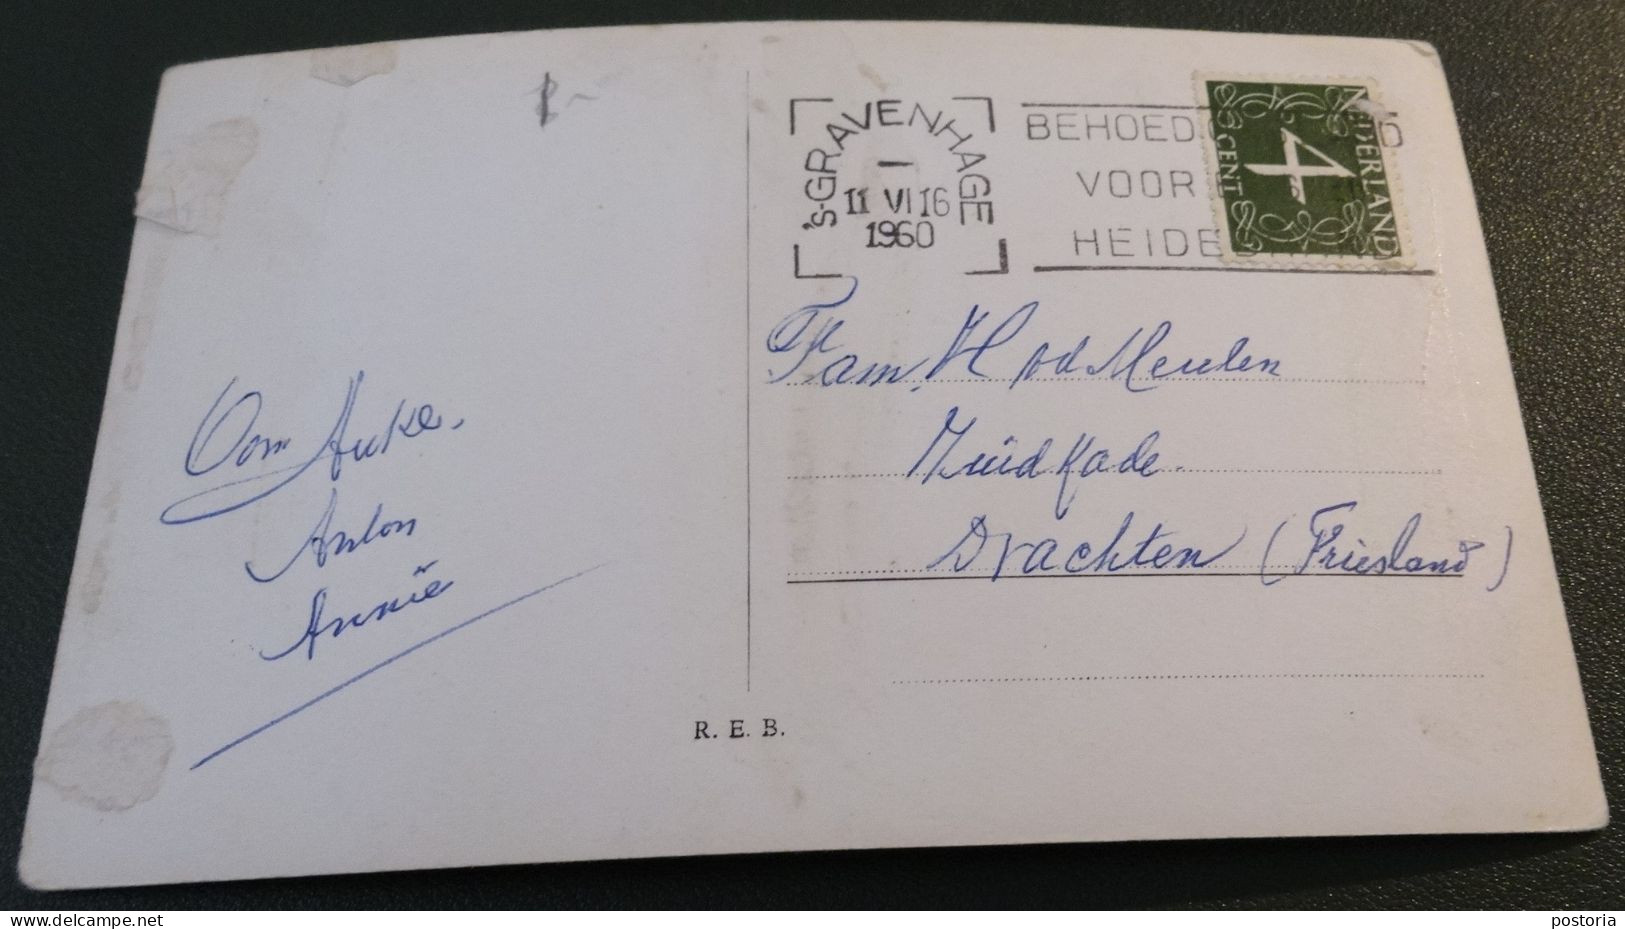 's-GRAVENHAGE
1
11 VI 16
1960
BEHOED
VOOR
HEIDE
NEDERLAND
4
CENT
Oom Auke.
Anton
Annië
Fam. H v d Meulen
Zuidkade.
Drachten (Friesland)
R. E. B.
delcampe.net
postoria